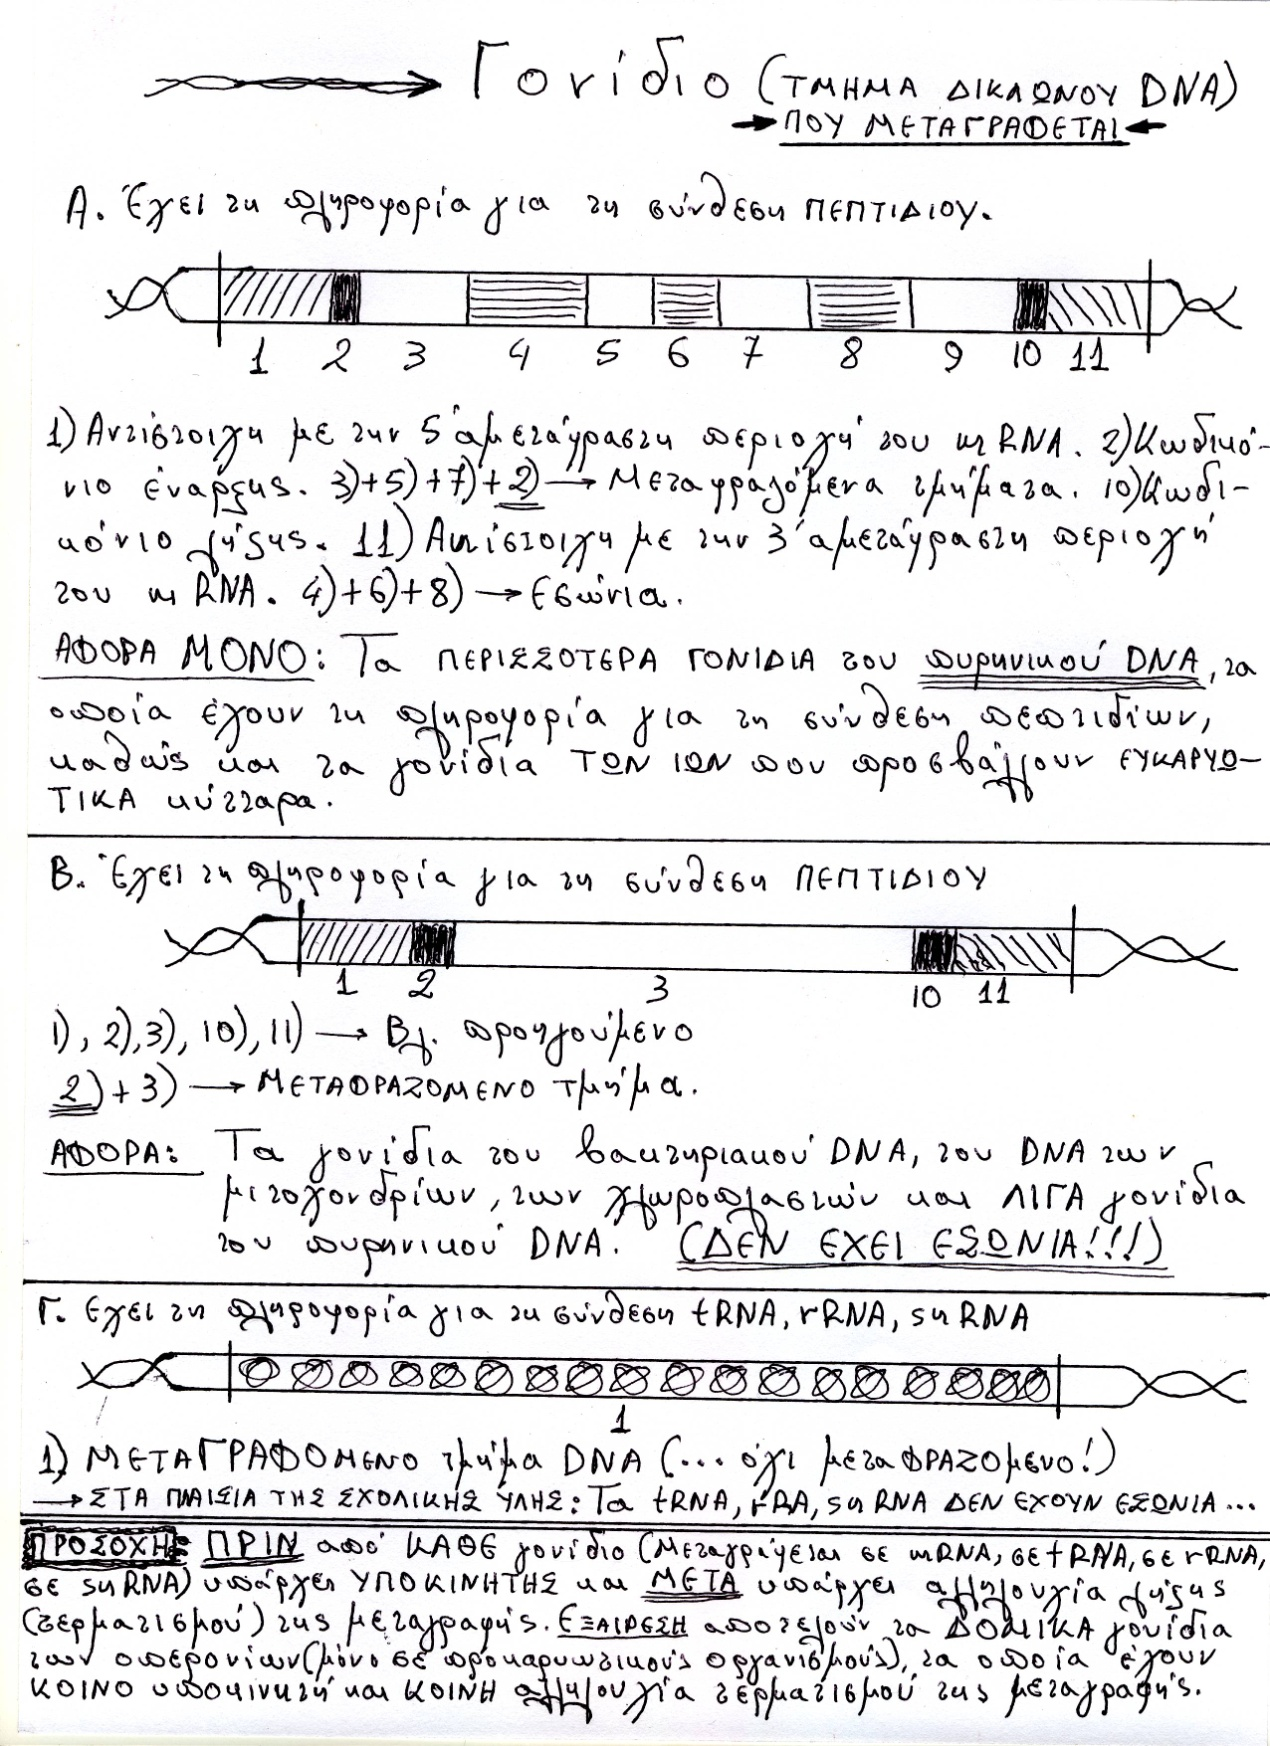 Γονίδιο (ΤΜΗΜΑ ΔΙΚΛΩΝΟΥ DNA)
ΠΟΥ ΜΕΤΑΓΡΑΦΕΤΑΙ
Α. Έχει τη πληροφορία για τη σύνθεση ΠΕΠΤΙΔΙΟΥ.
1 2 3 4 5 6 7 8 9 10 11
1) Αντίστοιχη με την 5΄αμετάφραστη περιοχή του mRNA. 2) Κωδικό-
νιο έναρξης. 3)+5)+7)+2) → Μεταφραζόμενα τμήματα. 10) Κωδι-
κόνιο λήξης. 11) Αντίστοιχη με την 3΄αμετάφραστη περιοχή
του mRNA. 4)+6)+8) → Εσώνια.
ΑΦΟΡΑ ΜΟΝΟ: Τα ΠΕΡΙΣΣΟΤΕΡΑ ΓΟΝΙΔΙΑ του πυρηνικού DNA, τα
οποία έχουν τη πληροφορία για τη σύνθεση πεπτιδίων,
καθώς και τα γονίδια ΤΩΝ ΙΩΝ που προσβάλλουν ΕΥΚΑΡΥΩ-
ΤΙΚΑ κύτταρα.
Β. Έχει τη πληροφορία για τη σύνθεση ΠΕΠΤΙΔΙΟΥ
1 2 3 10 11
1), 2), 3), 10), 11) → Βλ. προηγούμενο
2)+3) → ΜΕΤΑΦΡΑΖΟΜΕΝΟ τμήμα.
ΑΦΟΡΑ: Τα γονίδια του βακτηριακού DNA, του DNA των
μιτοχονδρίων, των χλωροπλαστών και ΛΙΓΑ γονίδια
του πυρηνικού DNA. (ΔΕΝ ΕΧΕΙ ΕΣΩΝΙΑ!!!)
Γ. Εχει τη πληροφορία για τη σύνθεση tRNA, rRNA, snRNA
1
1) ΜΕΤΑΓΡΑΦΟΜΕΝΟ τμήμα DNA (... όχι μεταΦΡΑΖΟμενο!)
→ ΣΤΑ ΠΛΑΙΣΙΑ ΤΗΣ ΣΧΟΛΙΚΗΣ ΎΛΗΣ: Τα tRNA, rRA, snRNA ΔΕΝ ΕΧΟΥΝ ΕΣΩΝΙΑ...
ΠΡΟΣΟΧΗ: ΠΡΙΝ από ΚΑΘΕ γονίδιο (Μεταγράφεται σε mRNA, σε tRNA, σε rRNA,
σε snRNA) υπάρχει ΥΠΟΚΙΝΗΤΗΣ και ΜΕΤΑ υπάρχει αλληλουχία λήξης
(τερματισμού) της μεταγραφής. ΕΞΑΙΡΕΣΗ αποτελούν τα ΔΟΜΙΚΑ γονίδια
των οπερονίων (μόνο σε προκαρυωτικούς οργανισμούς), τα οποία έχουν
ΚΟΙΝΟ υποκινητή και ΚΟΙΝΗ αλληλουχία τερματισμού της μεταγραφής.